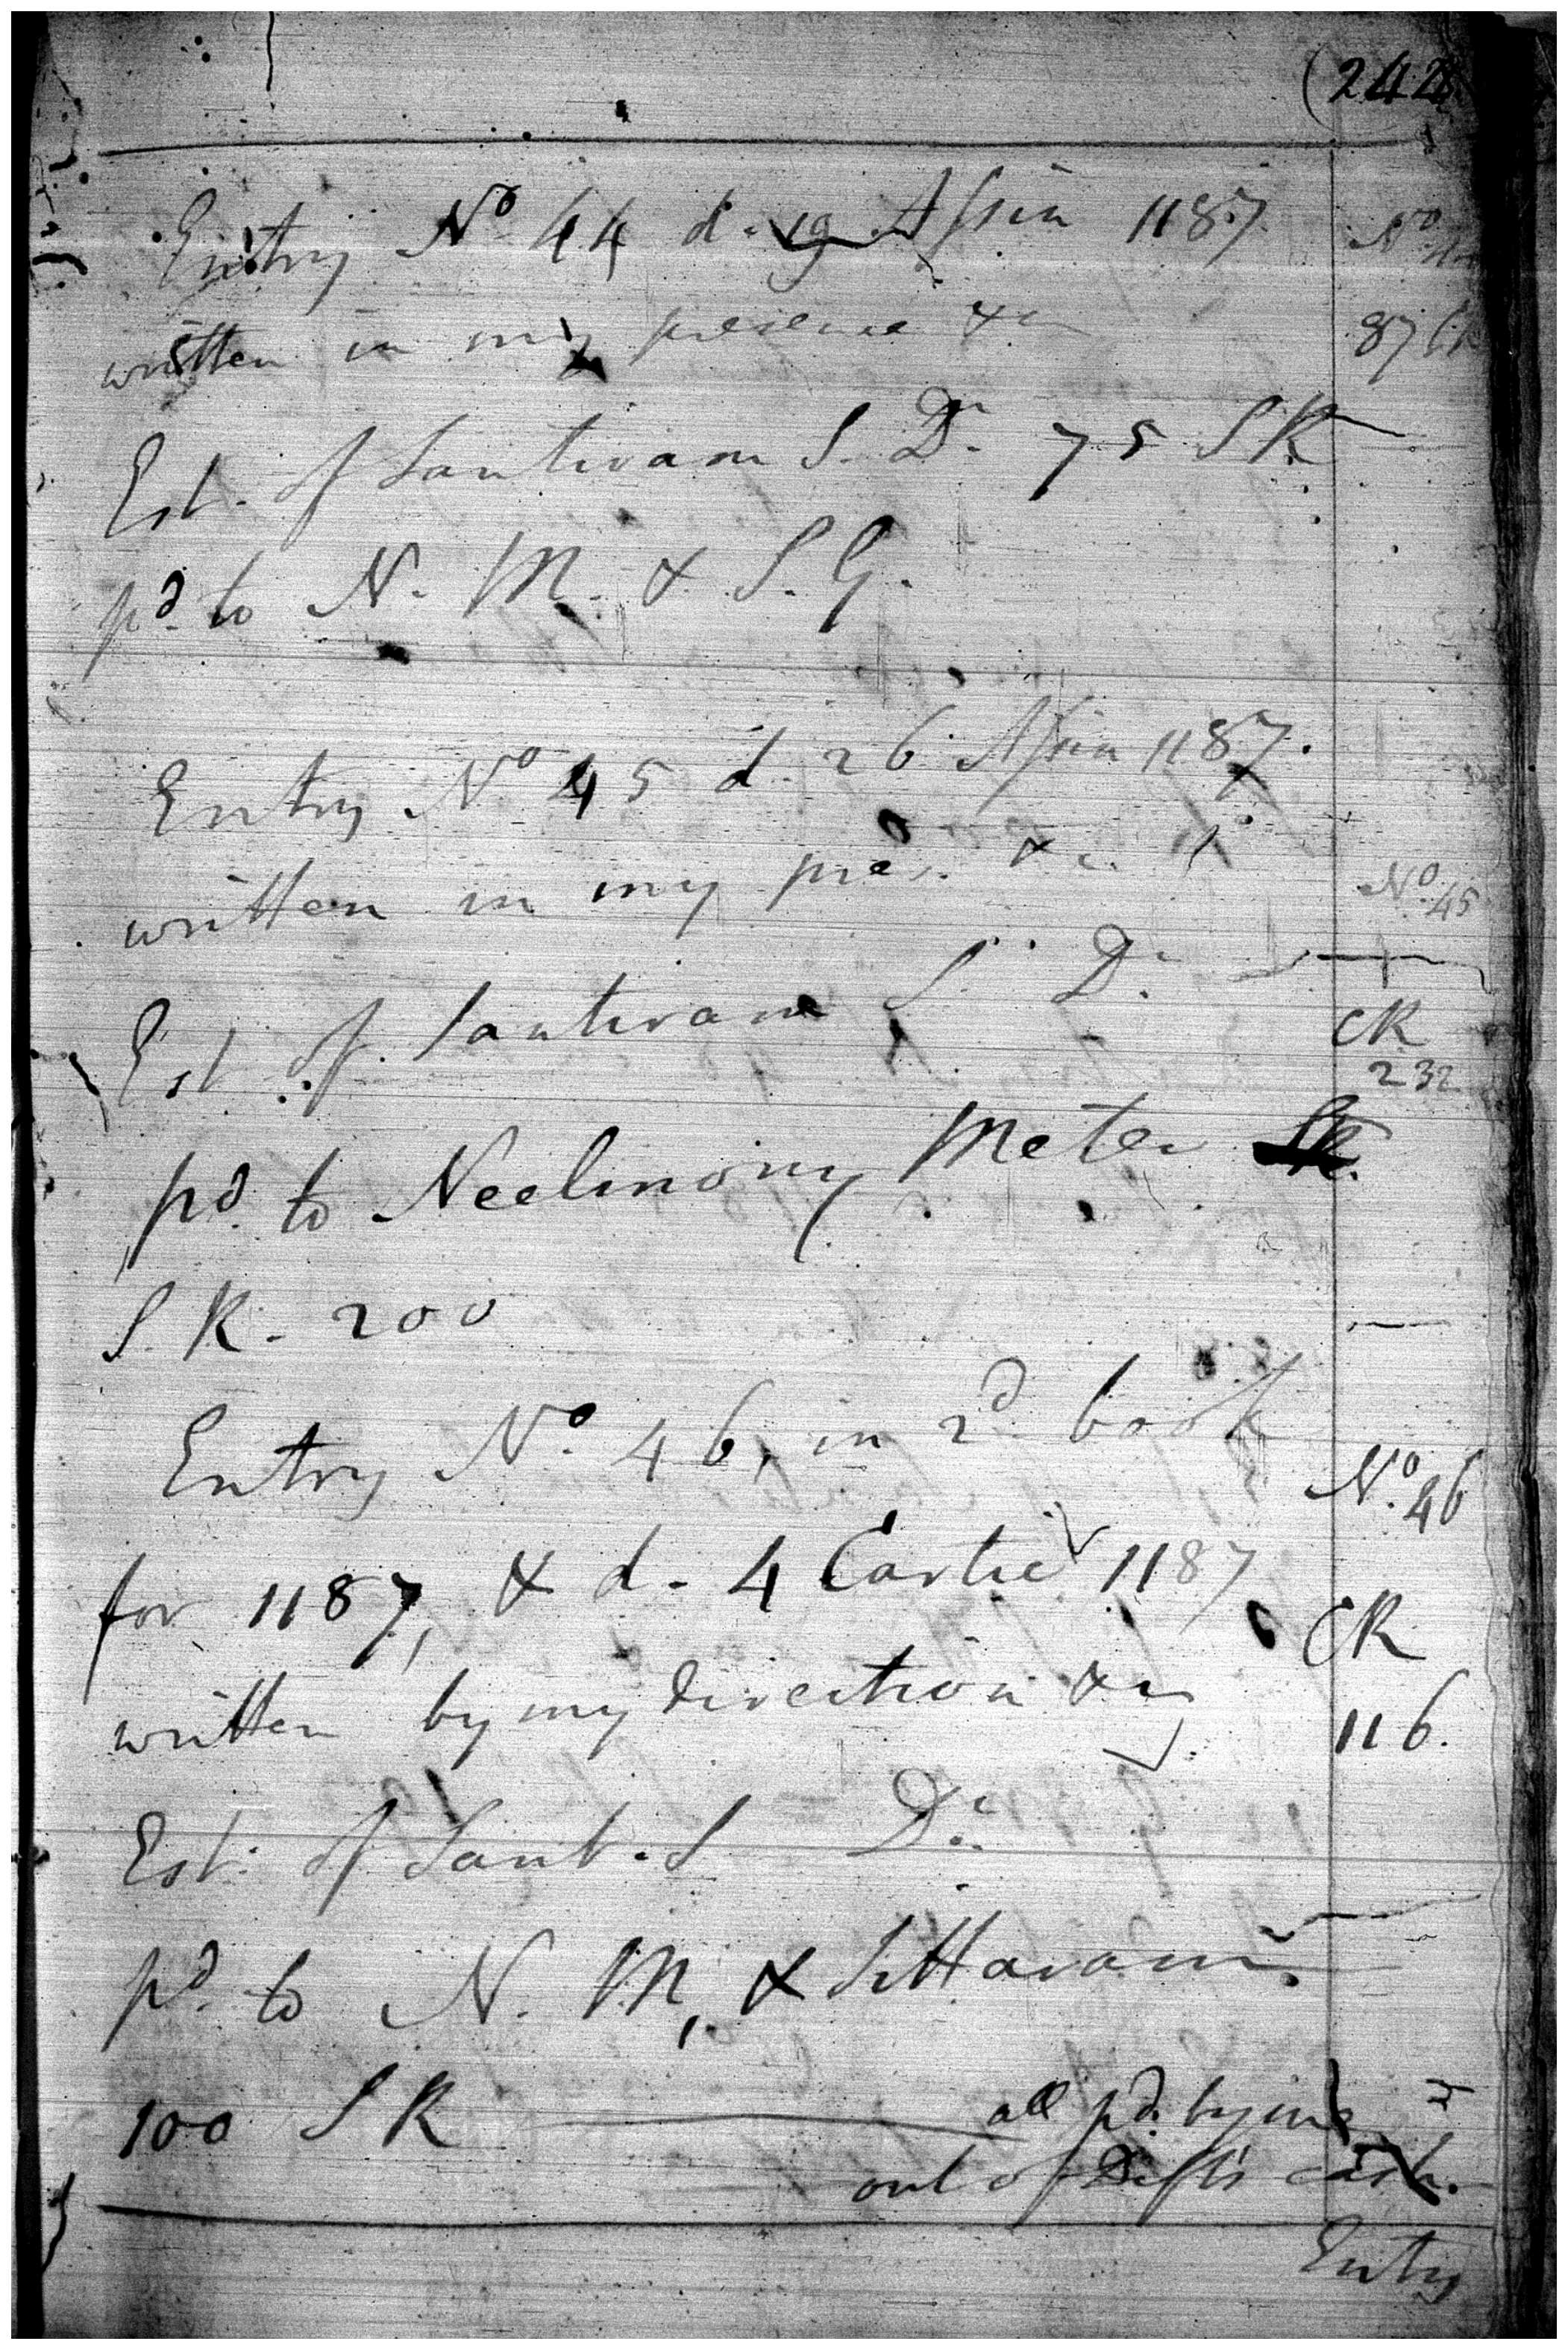 (242
Entry No 44 d. 19 Assin 1187.
No 44
written in my presence &c
87 CR
Est. of Santiram S. Dr. 75 SR
pd. to N. M. & S. G.
Entry No 45 d. 26 Assin 1187.
written in my pres. &c
No. 45
Est. of Santiram S. Dr.
CR
232
pd. to Neelmony Meter
S. R. 200
Entry No. 46, in 2d book
No. 46
for 1187, & d. 4 Cartic 1187
CR
written by my direction &c
116.
Est. of Sant. S Dr.
pd. to N. M, & Sittaram.
100 S R all pd. by me
out of Defts cash.
Entry